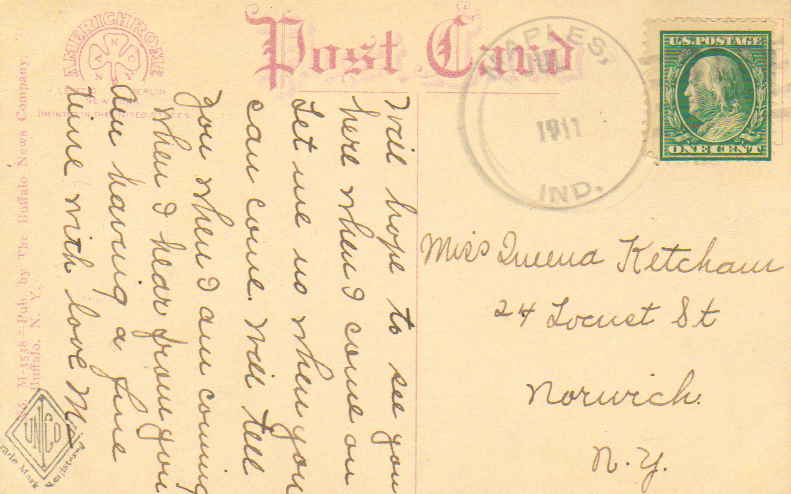 Post Card
AMERICHROME
NAPLES,
JUL
1911
IND.
U.S. POSTAGE
ONE CENT
Miss Queena Ketcham
24 Locust St
Norwich.
N.Y.
Will hope to see you
here when I come on
Let me no when you
can come. Will tell
you when I am coming
when I hear from you
Am having a fine
time with love M
M-4538 - Pub. by The Buffalo News Company,
Buffalo, N. Y.
UNCO
Trade Mark Registered